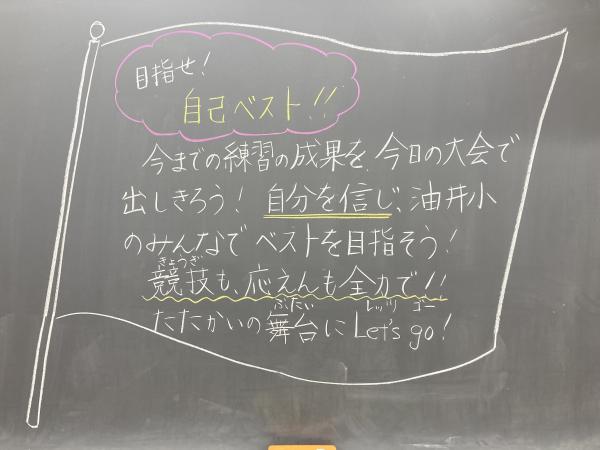 目指せ!
自己ベスト!!
今までの練習の成果を、今日の大会で
出しきろう! 自分を信じ、油井小
のみんなでベストを目指そう!
きょうぎ
競技も、応えんも全力で!!
ぶたい レッツ ゴー
たたかいの舞台にLet's go!